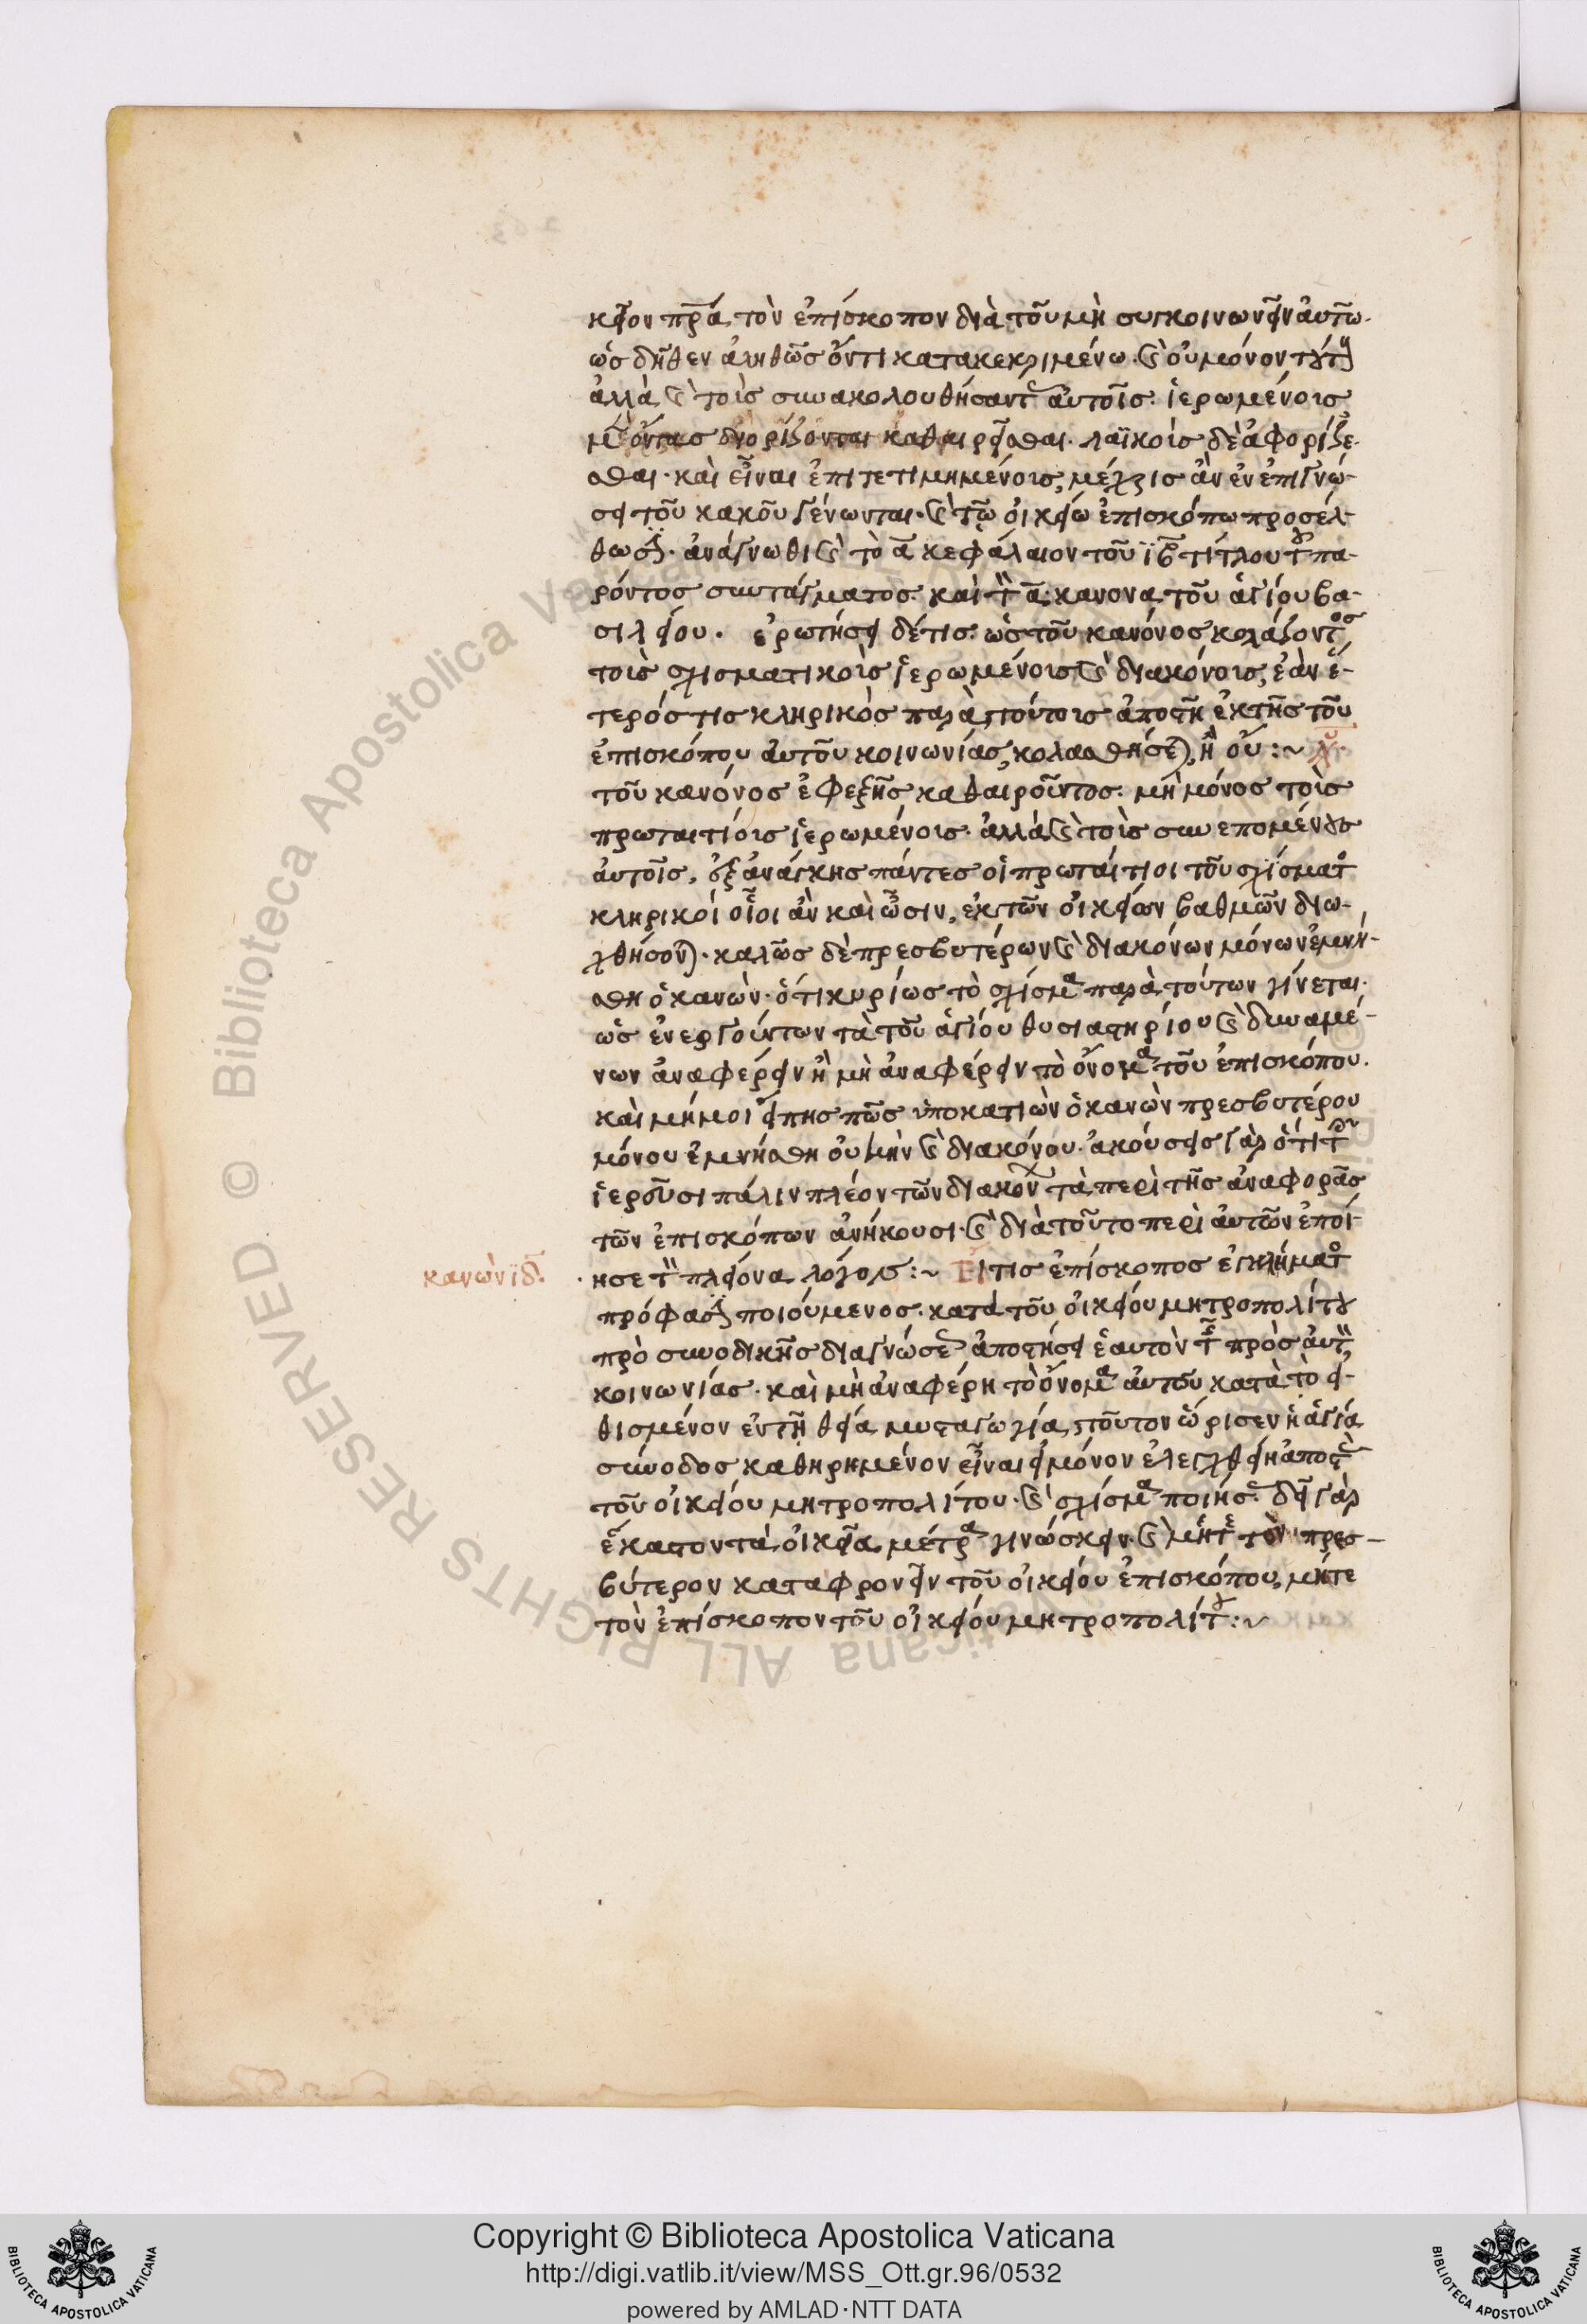 κεῖον πρ̅ά τὸν ἐπίσκοπον διὰ τοῦ μὴ συγκοινωνεῖν αὐτῶ.
ὡς δῆθεν ἀληθῶς ὄντι κατακεκριμένω. καὶ οὐ μόνον τούτους
ἀλλὰ καὶ τοῖς συνακολουθήσαντας αὐτοῖς. ἱερωμένοις
μὲν ὄντας διορίζονται καθαιρεῖσθαι. λαϊκοὶς δὲ ἀφορίζε-
σθαι. καὶ εἶναι ἐπιτετιμημένοις, μέχρις ἂν ἐν ἐπιγνώ-
σει τοῦ κακοῦ γένωνται. καὶ τῶ οἰκείω ἐπισκόπω προσέλ-
θωσιν. ἀνάγνωθι καὶ τὸ α̅ κεφάλαιον τοῦ ϊβ̅ τίτλου τοῦ πα-
ρόντος συντάγματος. καὶ τὸν α̅ κανονα τοῦ ἁγίου βα-
σιλείου. ἐρωτήσει δέ τις. ὡς τοῦ κανόνος κολάζοντος
τοὶς σχισματικοὶς ἱερωμένοις καὶ διακόνοις, ἐὰν ἕ-
τερός τις κληρικὸς παρὰ τούτοις ἀποστῆ ἐκ τῆς τοῦ
ἐπισκόπου αὐτοῦ κοινωνίας, κολασθήσεται, ἢ οὔ :~ λύ.
τοῦ κανόνος ἐφεξῆς καθαιροῦντος. μὴ μόνος τοὶς
πρωταιτίοις ἱερωμένοις. ἀλλὰ καὶ τοὶς συνεπομένους
αὐτοῖς, ἐξ ἀνάγκης πάντες οἱ πρωταίτιοι τοῦ σχίσματος
κληρικοί οἷοι ἂν καὶ ὦσιν, ἐκ τῶν οἰκείων βαθμῶν διω-
χθήσονται. καλῶς δὲ πρεσβυτέρων καὶ διακόνων μόνων ἐμνή-
σθη ὁ κανὼν. ὅτι κυρίως τὸ σχίσμα παρὰ τούτων γίνεται.
ὡς ἐνεργούντων τὰ τοῦ ἁγίου θυσιαστηρίου καὶ δυναμέ-
νων ἀναφέρειν ἢ μὴ ἀναφέρειν τὸ ὄνομα τοῦ ἐπισκόπου.
καὶ μή μοι εἴπης πῶς ὑποκατιὼν ὁ κανὼν πρεσβυτέρου
μόνου ἐμνήσθη οὐ μὴν καὶ διακόνου. ἀκούσεις γὰρ ὅτι τῶν
ἱεροῦσι πάλιν πλέον τῶν διακόνων τὰ περὶ τῆς ἀναφορᾶς
τῶν ἐπισκόπων ἀνήκουσι. καὶ διὰ τοῦτο περὶ αὐτῶν ἐποί-
κανὼν ϊδ̅. ησε τὸν πλείονα λόγον :~ Εἴ τις ἐπίσκοπος ἐγκλήματος
πρόφασιν ποιούμενος. κατὰ τοῦ οἰκείου μητροπολίτου
πρὸ συνοδικῆς διαγνώσεως ἀποστήσει ἑαυτὸν τῆς πρὸς αὐτὸν
κοινωνίας. καὶ μὴ ἀναφέρη τὸ ὄνομα αὐτοῦ κατὰ τὸ εἰ-
θισμένον ἐν τῆ θεία μυσταγωγία, τοῦτον ὥρισεν ἡ ἁγία
σύνοδος καθηρημένον εἶναι εἰ μόνον ἐλεγχθείη ἀποστὰς
τοῦ οἰκείου μητροπολίτου. καὶ σχίσμα ποιήσας. δεῖ γὰρ
ἕκαστον τὰ οἰκεῖα μέτρα γινώσκειν. καὶ μήτε τὸν πρεσ-
βύτερον καταφρονεῖν τοῦ οἰκείου ἐπισκόπου, μήτε
τὸν ἐπίσκοπον τοῦ οἰκείου μητροπολίτου :~
Copyright © Biblioteca Apostolica Vaticana
http://digi.vatlib.it/view/MSS_Ott.gr.96/0532
powered by AMLAD·NTT DATA
BIBLIOTECA APOSTOLICA VATICANA
BIBLIOTECA APOSTOLICA VATICANA
© Biblioteca Apostolica Vaticana ALL RIGHTS RESERVED